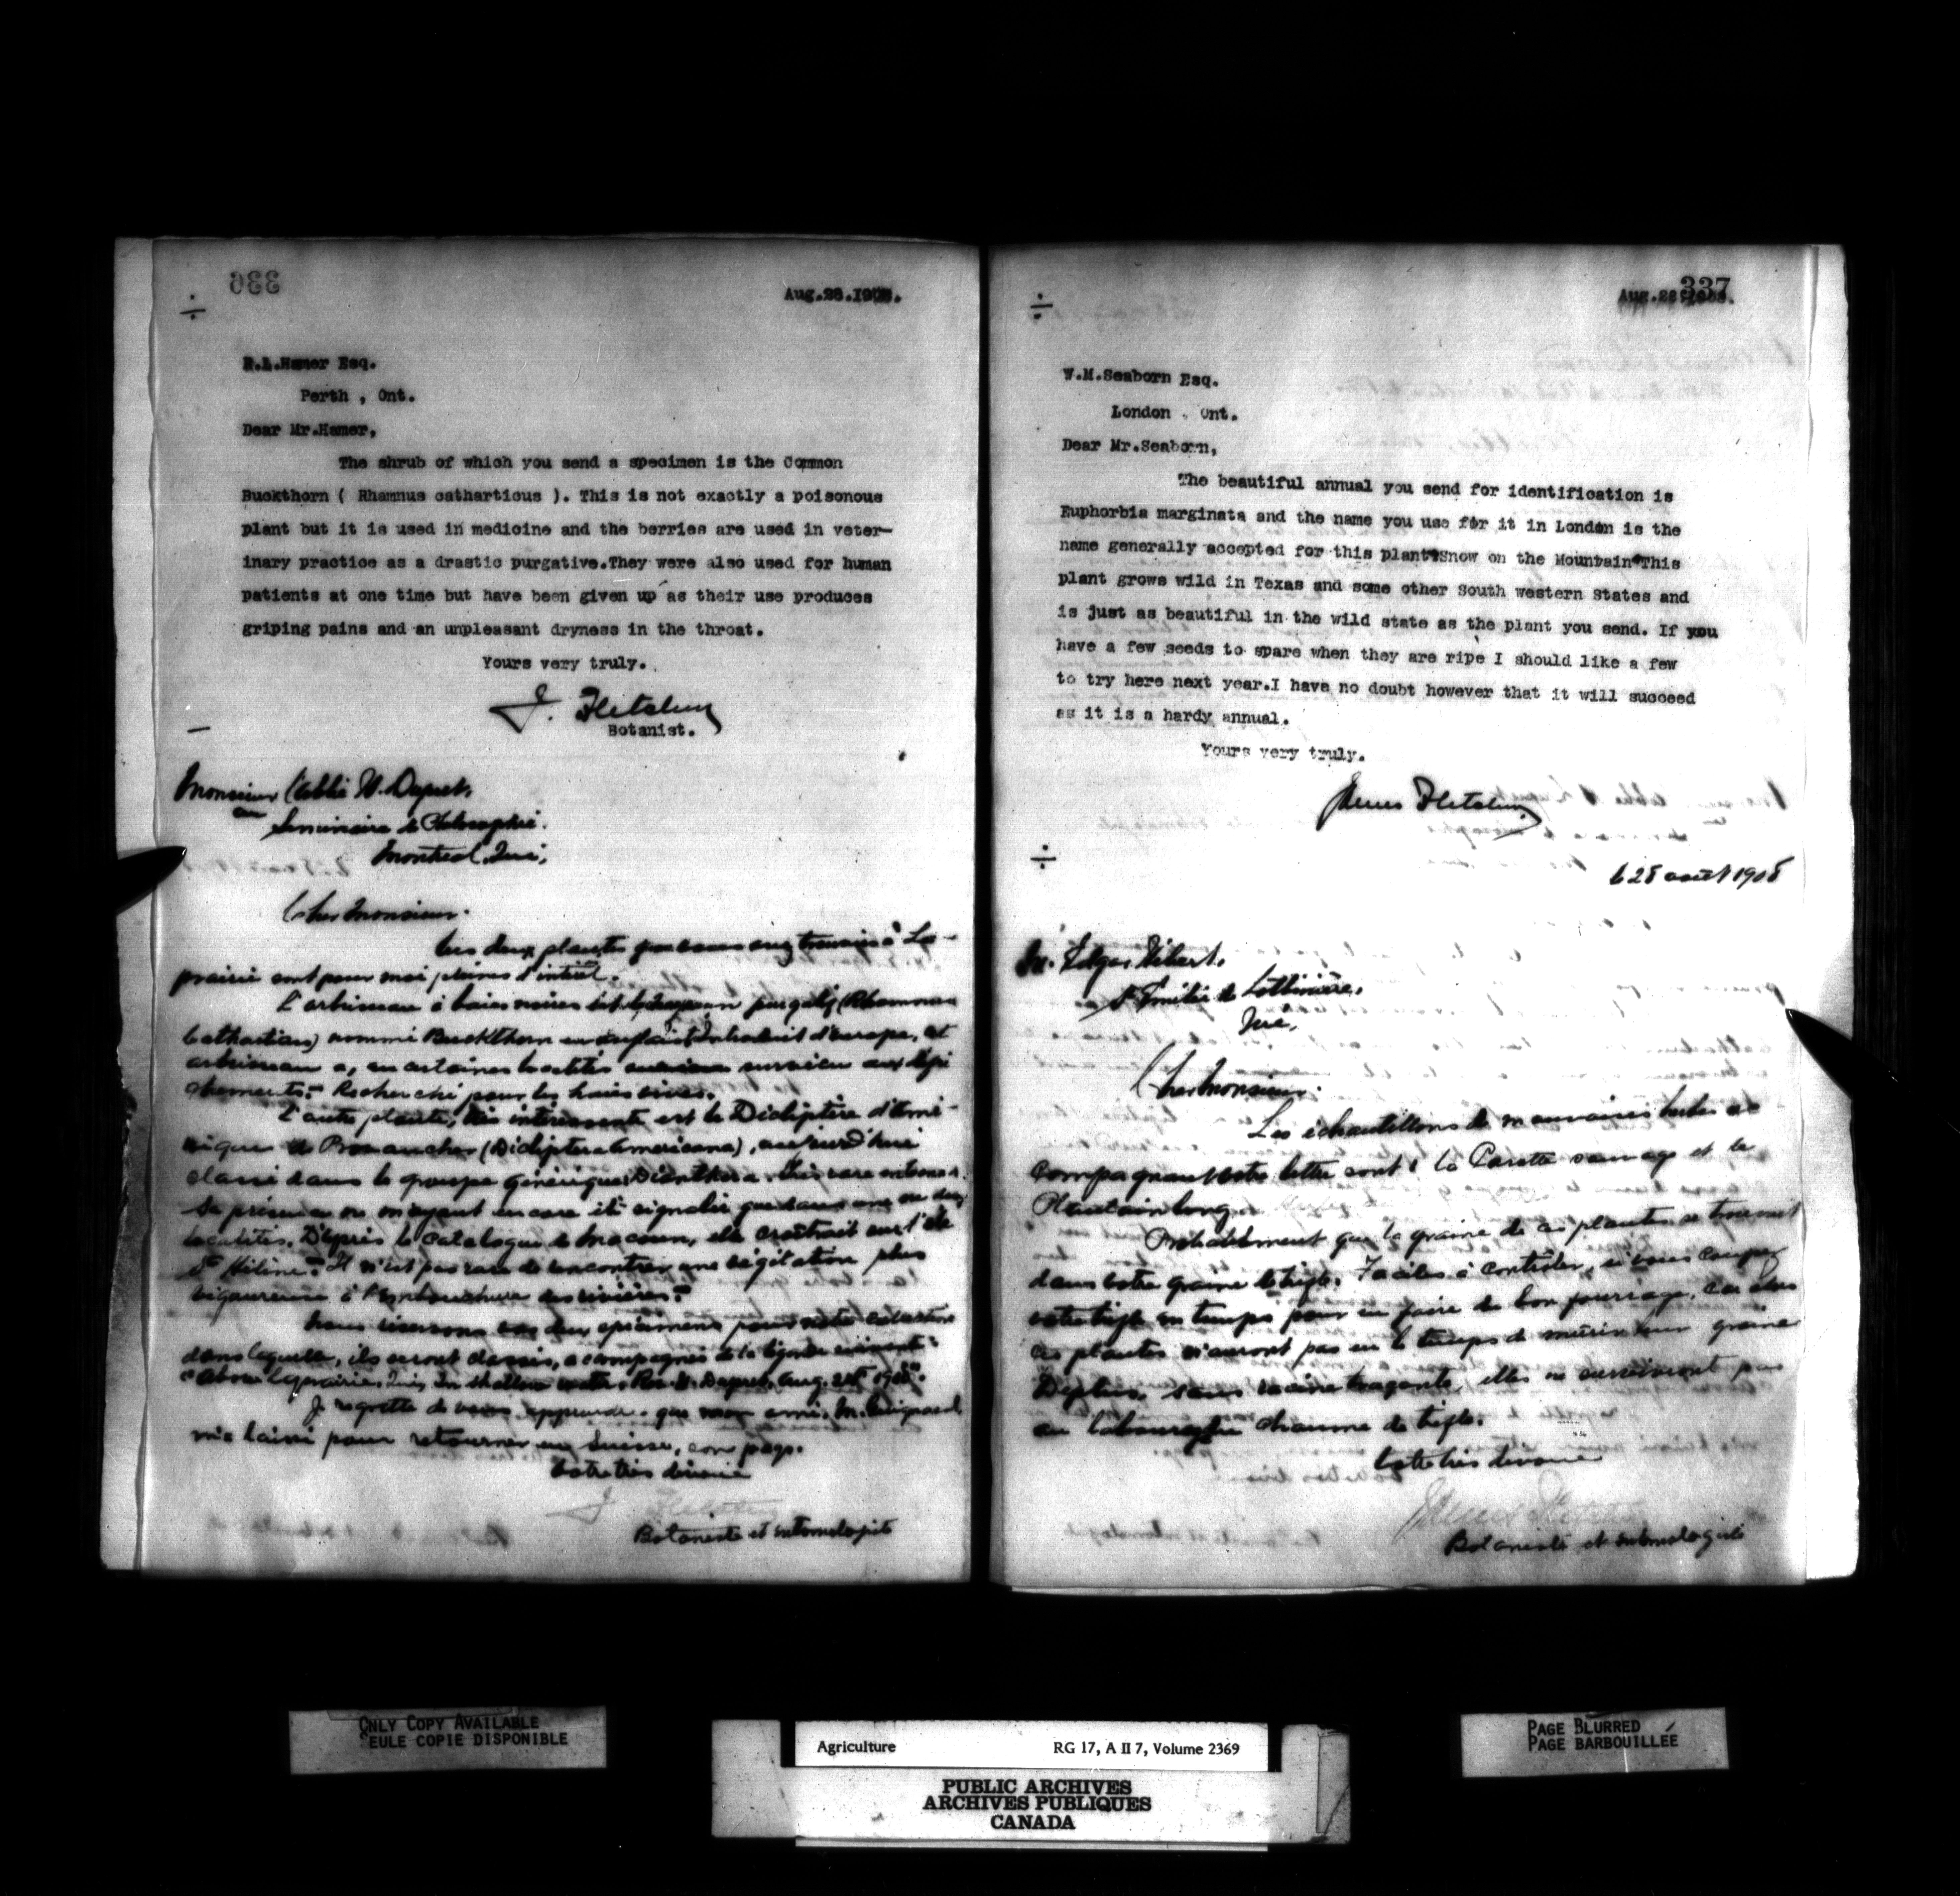 336
Aug.28.1908.
R.L.Hamer Esq.
Perth , Ont.
Dear Mr.Hamer,
The shrub of which you send a specimen is the Common
Buckthorn ( Rhamnus catharticus ). This is not exactly a poisonous
plant but it is used in medicine and the berries are used in veter-
inary practice as a drastic purgative.They were also used for human
patients at one time but have been given up as their use produces
griping pains and an unpleasant dryness in the throat.
Yours very truly.
J. Fletcher
Botanist.
Monsieur l'abbé
au Séminaire de Philosophie.
Montreal, Qué,
Cher Monsieur.
Les deux plantes que vous avez trouvées à La-
prairie sont pour moi pleines d'intérêt.
L'arbrisseau à baies noires est le purgatif (Rhamnus
catharticus) nommé Buckthorn en introduit d'Europe, cet
arbrisseau a, en certaines localités
Recherché pour les haies vives.
L'autre plante, très intéressante est le Dicliptère d'Amé-
rique (Dicliptera Americana), aujourd'hui
classé dans le groupe générique Dianthera. très rare
Sa présence n'ayant encore été signalée que dans une ou deux
localités. D'après le Catalogue de Macoun, elle croîtrait sur l'île
Ste Hélène. Il n'est pas rare de rencontrer une végétation plus
vigoureuse à l'embouchure des rivières.
Nous vos deux spécimens pour notre collection
dans laquelle, ils seront classés, accompagnés de la légende suivante:
"Above Laprairie, Que, In shallow water, Rev. Aug. 1908".
Je regrette de vous apprendre que mon ami, M. Guignard,
m'a laissé pour retourner en Suisse, son pays.
Votre très dévoué
J Fletcher
Botaniste et entomologiste
337
Aug.28.1908.
W.M.Seaborn Esq.
London , Ont.
Dear Mr.Seaborn,
The beautiful annual you send for identification is
Euphorbia marginata and the name you use for it in London is the
name generally accepted for this plant"Snow on the Mountain"This
plant grows wild in Texas and some other South western States and
is just as beautiful in the wild state as the plant you send. If you
have a few seeds to spare when they are ripe I should like a few
to try here next year.I have no doubt however that it will succeed
as it is a hardy annual.
Yours very truly.
James Fletcher
le 28 août 1908
M. Edgar
Ste Emilie de Lotbinière.
Qué,
Cher Monsieur.
Les échantillons de mauvaises herbes ac-
compagnant votre lettre sont: la Carotte sauvage et le
Plantain long.
Probablement que la graine de ces plantes se trouvait
dans votre graine de trèfle. Faciles à contrôler, si vous coupez
votre trèfle en temps pour en faire de bon fourrage, car alors
ces plantes n'auront pas eu le temps de mûrir leur graine
De plus, sans racine traçante, elles ne survivront pas
au labourage du chaume de trèfle.
Votre très dévoué
James Fletcher
Botaniste et entomologiste
ONLY COPY AVAILABLE
SEULE COPIE DISPONIBLE
Agriculture RG 17, A II 7, Volume 2369
PUBLIC ARCHIVES
ARCHIVES PUBLIQUES
CANADA
PAGE BLURRED
PAGE BARBOUILLÉE